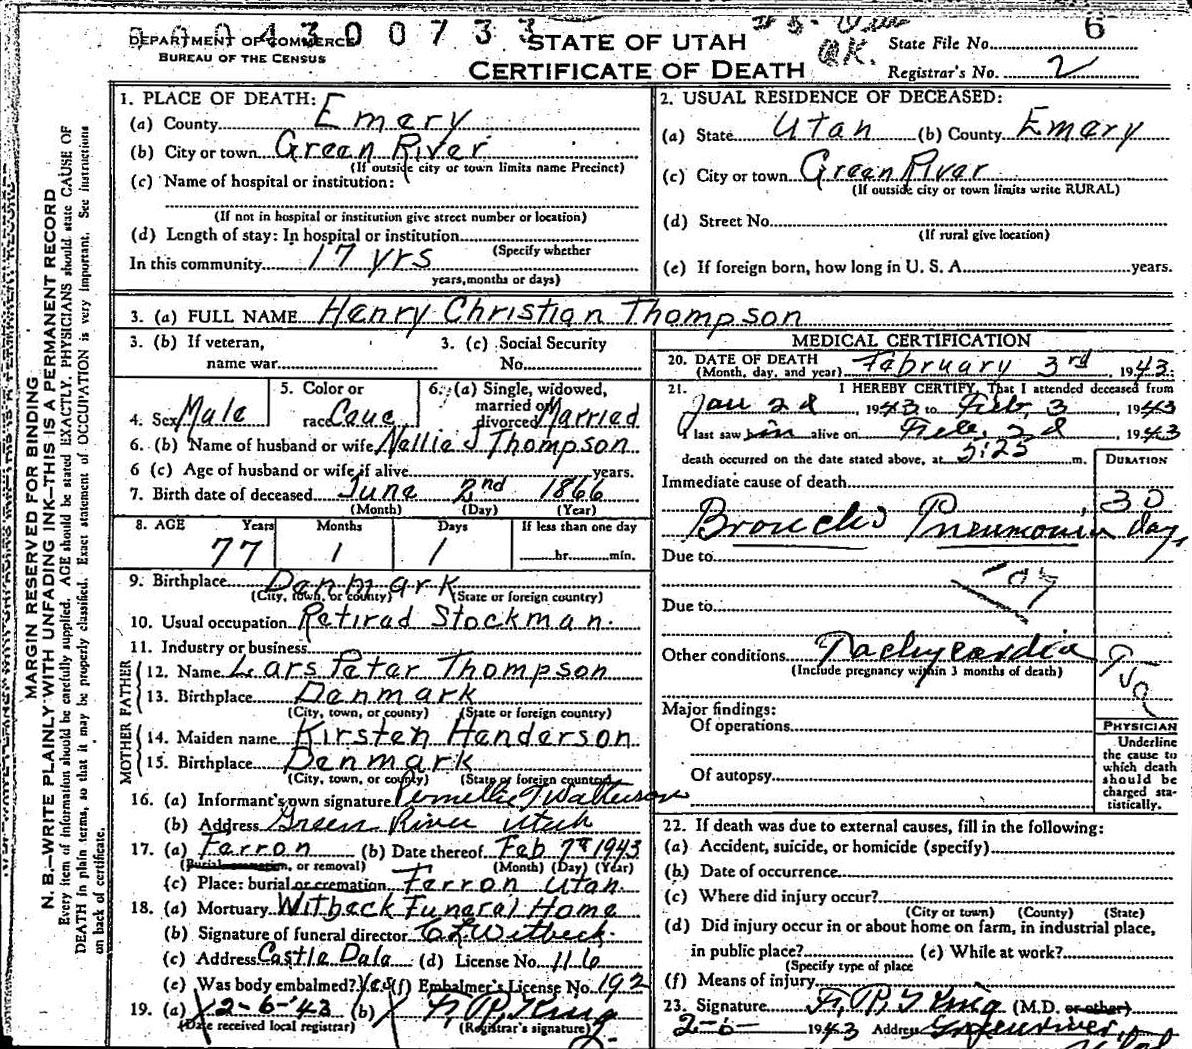 3 0 0 4 3 0 0 7 3 3
DEPARTMENT OF COMMERCE
BUREAU OF THE CENSUS
STATE OF UTAH
CERTIFICATE OF DEATH
O.K.
State File No. 6
Registrar's No. 2
MARGIN RESERVED FOR BINDING
N. B.—WRITE PLAINLY WITH UNFADING INK—THIS IS A PERMANENT RECORD
Every item of information should be carefully supplied. AGE should be stated EXACTLY. PHYSICIANS should state CAUSE OF
DEATH in plain terms, so that it may be properly classified. Exact statement of OCCUPATION is very important. See instructions
on back of certificate.
1. PLACE OF DEATH:
(a) County Emery
(b) City or town Green River
(If outside city or town limits name Precinct)
(c) Name of hospital or institution:
(If not in hospital or institution give street number or location)
(d) Length of stay: In hospital or institution
(Specify whether
In this community 17 yrs
years, months or days)
2. USUAL RESIDENCE OF DECEASED:
(a) State Utah (b) County Emery
(c) City or town Green River
(If outside city or town limits write RURAL)
(d) Street No.
(If rural give location)
(e) If foreign born, how long in U. S. A. years.
3. (a) FULL NAME Henry Christian Thompson
3. (b) If veteran, 3. (c) Social Security
name war No.
4. Sex Male
5. Color or
race Cauc
6. (a) Single, widowed,
married or
divorced Married
6. (b) Name of husband or wife Nellie J Thompson
6 (c) Age of husband or wife if alive years.
7. Birth date of deceased June 2nd 1866
(Month) (Day) (Year)
8. AGE Years Months Days If less than one day
77 1 1 hr. min.
9. Birthplace Denmark
(City, town, or county) (State or foreign country)
10. Usual occupation Retired Stockman.
11. Industry or business
FATHER
12. Name Lars Peter Thompson
13. Birthplace Denmark
(City, town, or county) (State or foreign country)
MOTHER
14. Maiden name Kirsten Henderson
15. Birthplace Denmark
(City, town, or county) (State or foreign country)
16. (a) Informant's own signature
(b) Address Green River Utah
17. (a) Ferron (b) Date thereof Feb 7th 1943
(Burial cremation, or removal) (Month) (Day) (Year)
(c) Place: burial or cremation Ferron Utah.
18. (a) Mortuary Witbeck Funeral Home
(b) Signature of funeral director C L Witbeck.
(c) Address Castle Dale (d) License No. 116
(e) Was body embalmed? Yes (f) Embalmer's License No. 192
19. (a) 2-6-'43 (b) King
(Date received local registrar) (Registrar's signature)
MEDICAL CERTIFICATION
20. DATE OF DEATH
(Month, day, and year) February 3rd, 1943.
21. I HEREBY CERTIFY, That I attended deceased from
Jan 2d, 1943, to Feb. 3, 1943
I last saw him alive on Feb. 2d, 1943
death occurred on the date stated above, at 5:25 m.
DURATION
Immediate cause of death
Broncho Pneumonia, 30 days
Due to
107
Due to
Other conditions Tachycardia
(Include pregnancy within 3 months of death)
Major findings:
Of operations
Of autopsy
PHYSICIAN
Underline
the cause to
which death
should be
charged sta-
tistically.
22. If death was due to external causes, fill in the following:
(a) Accident, suicide, or homicide (specify)
(b) Date of occurrence
(c) Where did injury occur?
(City or town) (County) (State)
(d) Did injury occur in or about home on farm, in industrial place,
in public place? (e) While at work?
(Specify type of place
(f) Means of injury
23. Signature King (M.D. or other)
2-6- 1943 Address Greenriver,